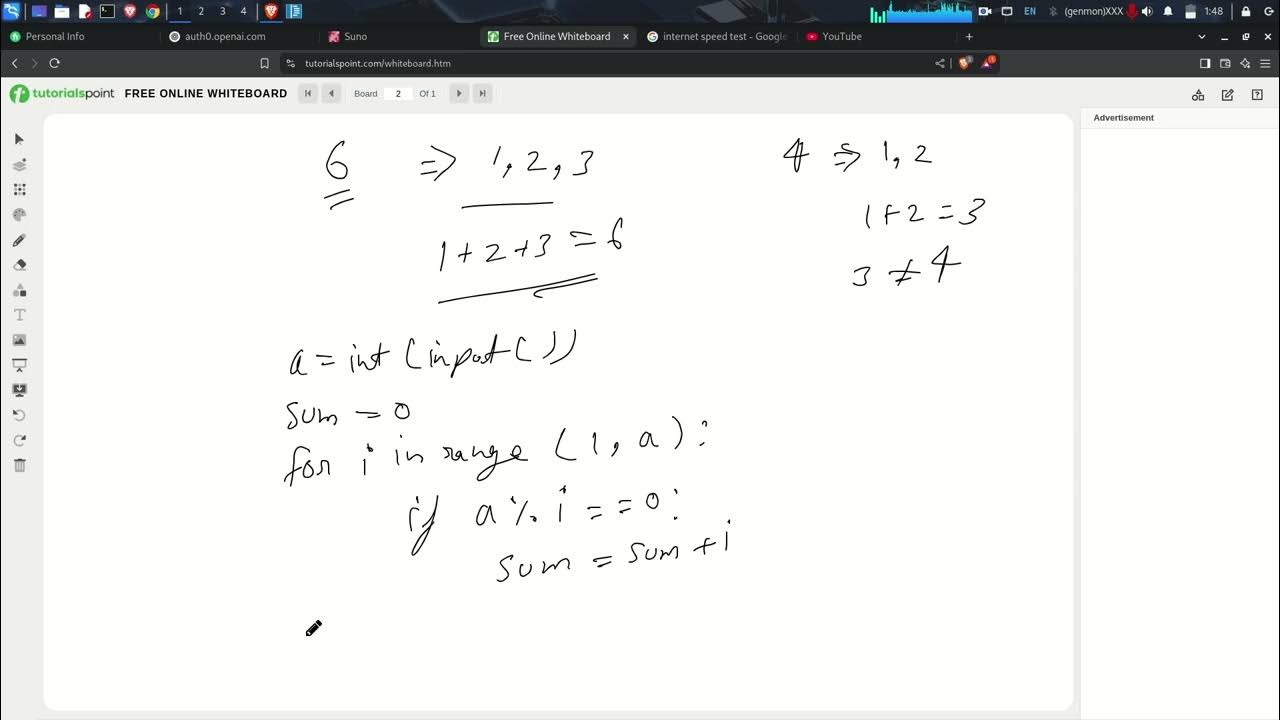 1 2 3 4 EN (genmon)XXX 1:48
Personal Info auth0.openai.com Suno Free Online Whiteboard internet speed test - Google YouTube
tutorialspoint.com/whiteboard.htm
tutorialspoint FREE ONLINE WHITEBOARD Board 2 Of 1
Advertisement
6 => 1, 2, 3
1+2+3 = 6
4 => 1, 2
1+2 = 3
3 ≠ 4
a = int(input())
sum = 0
for i in range (1, a):
if a % i == 0:
sum = sum + i